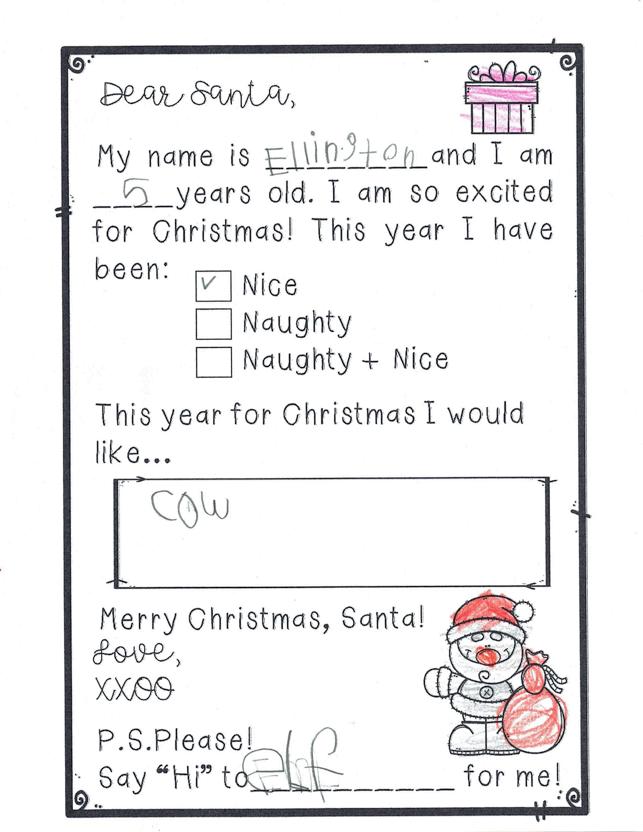 Dear Santa,
My name is Ellington and I am
5 years old. I am so excited
for Christmas! This year I have
been:
✓ Nice
Naughty
Naughty + Nice
This year for Christmas I would
like...
cow
Merry Christmas, Santa!
Love,
XXOO
P.S.Please!
Say “Hi” to Elf for me!